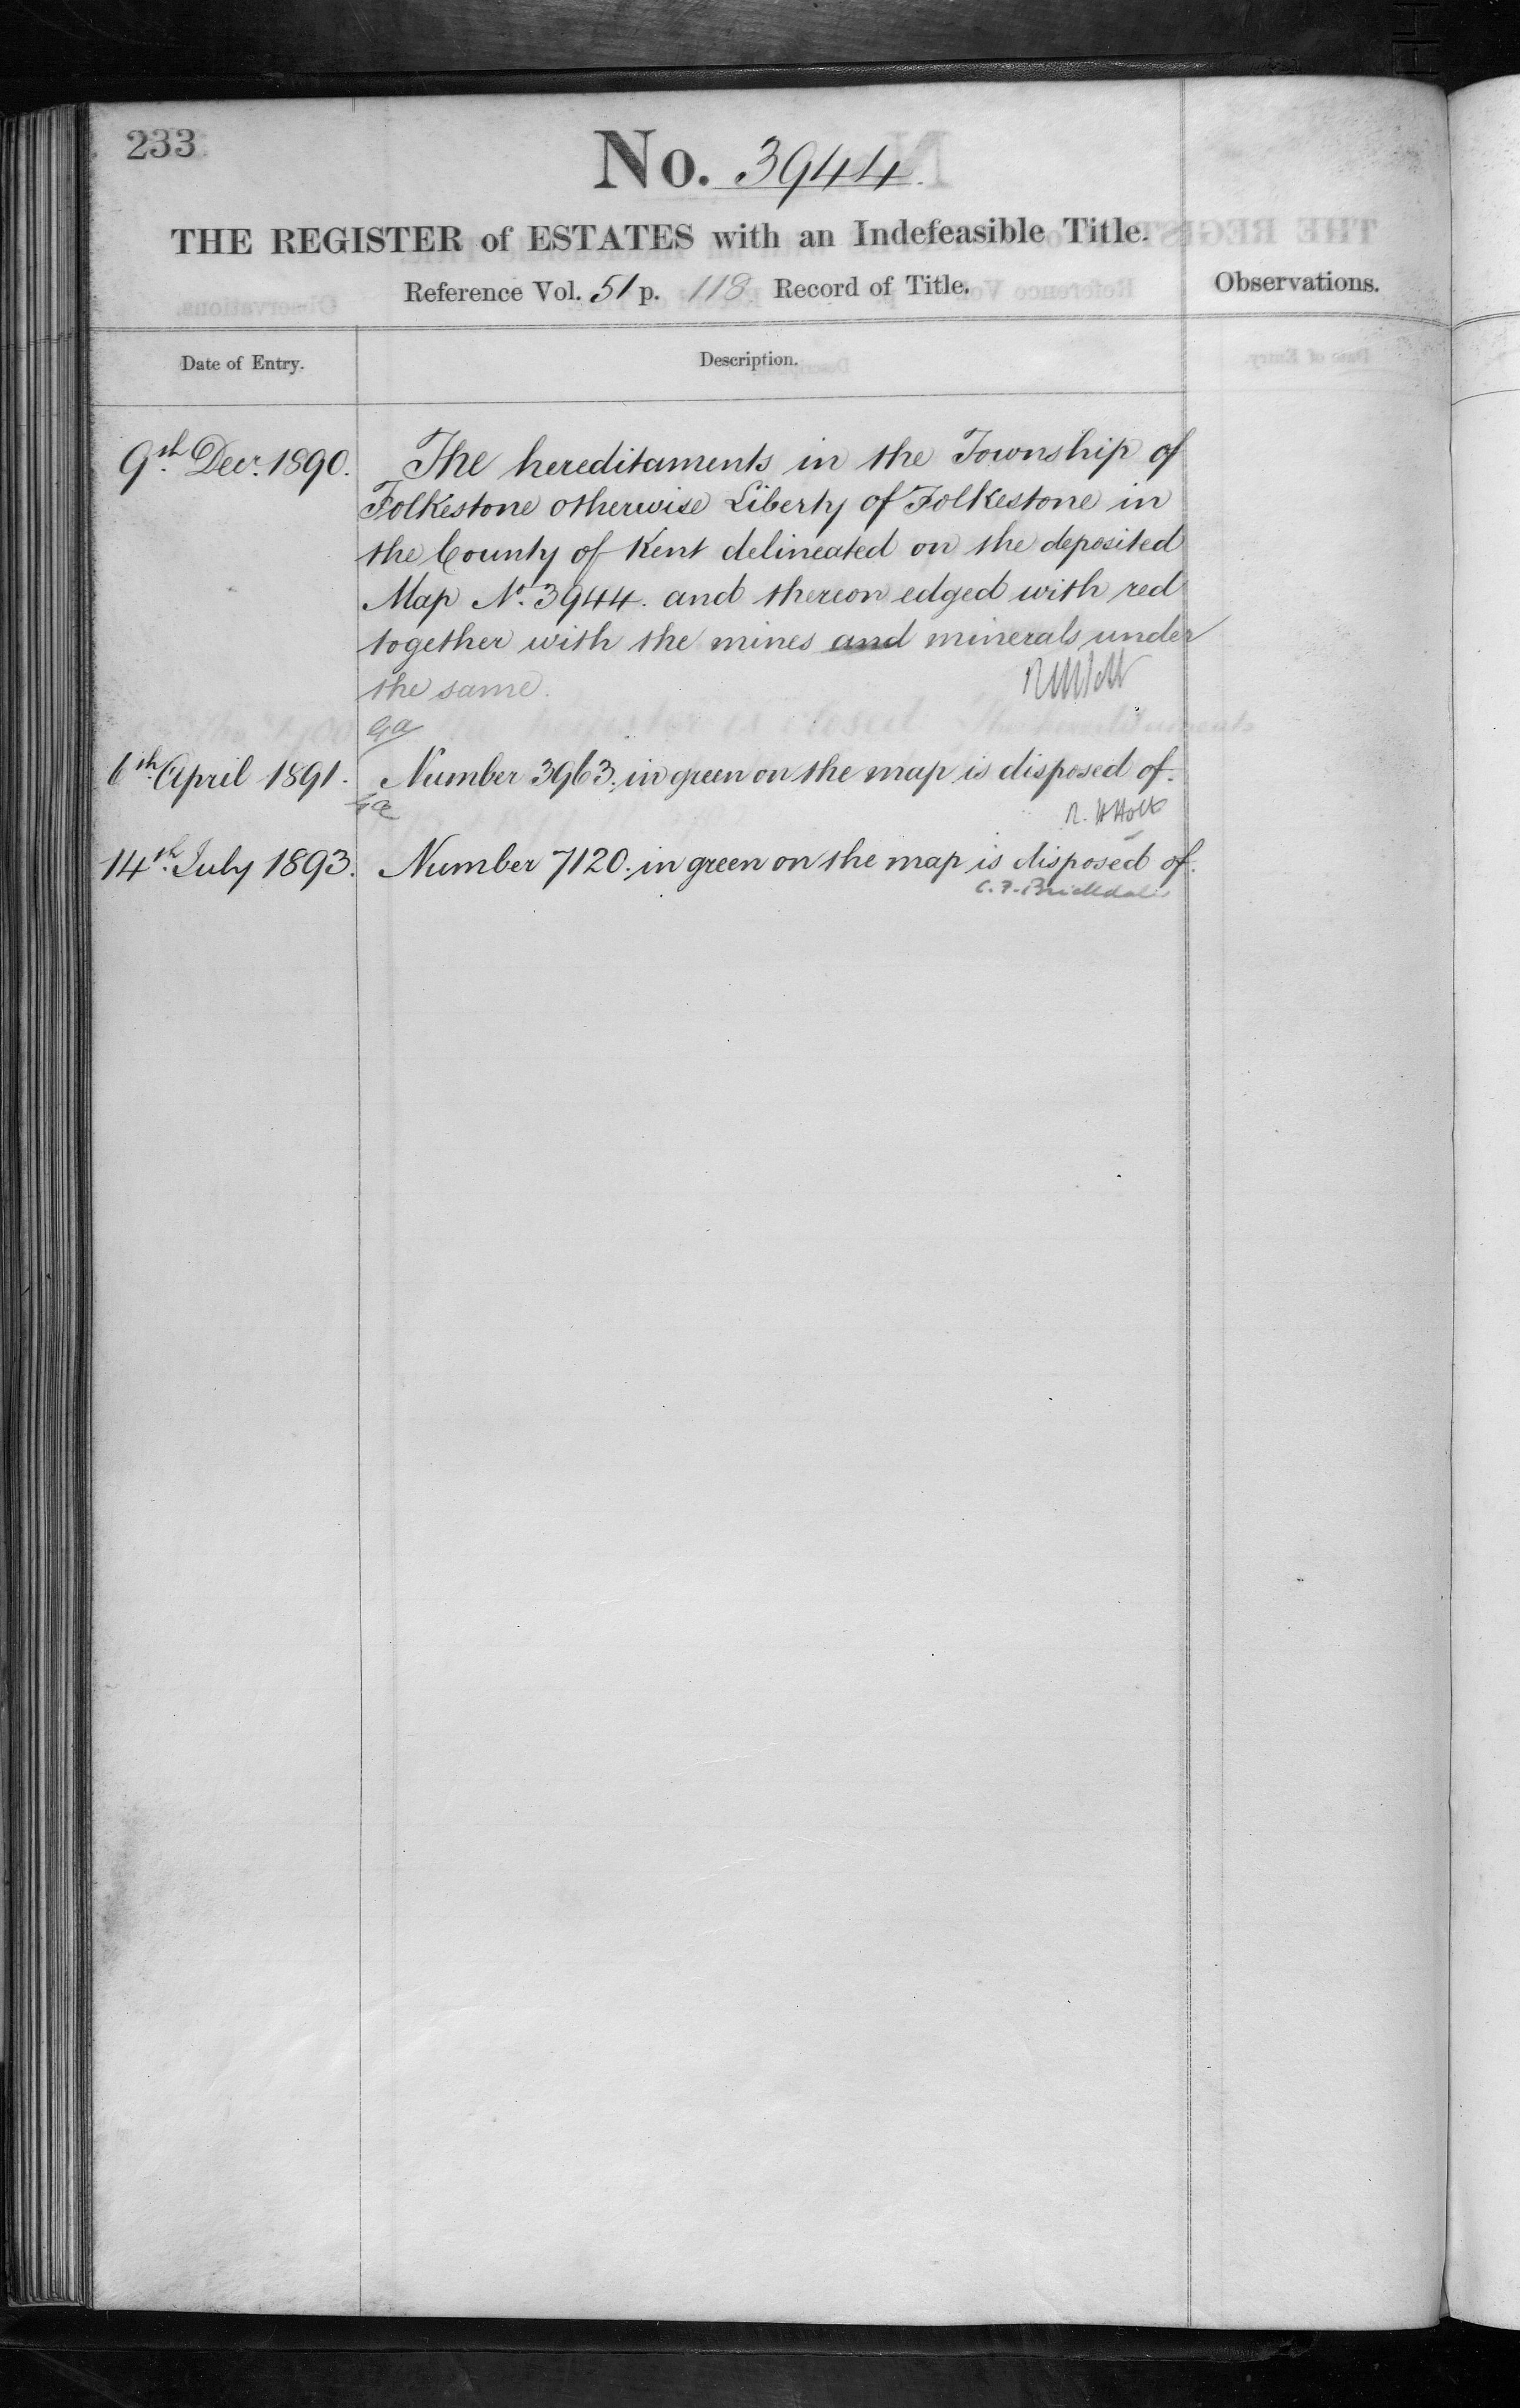 233
No. 3944.
THE REGISTER of ESTATES with an Indefeasible Title.
Reference Vol. 51 p. 118 Record of Title.
Observations.
Date of Entry.
Description.
9th Decr. 1890.
The hereditaments in the Township of
Folkestone otherwise Liberty of Folkestone in
the County of Kent delineated on the deposited
Map No. 3944. and thereon edged with red
together with the mines and minerals under
the same.
Ga
6th April 1891.
Number 3963. in green on the map is disposed of.
Ga
R. H Holt
14th July 1893.
Number 7120. in green on the map is disposed of.
C. F. Brickdale